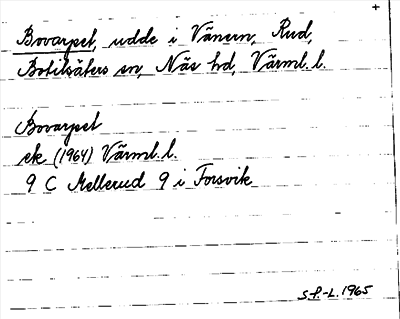 Bovarpet, udde i Vänern, Rud,
Botilsäters sn, Näs hd, Värml. l.
Bovarpet
ek (1964) Värml. l.
9 C Mellerud 9 i Forsvik
S.f.-L. 1965